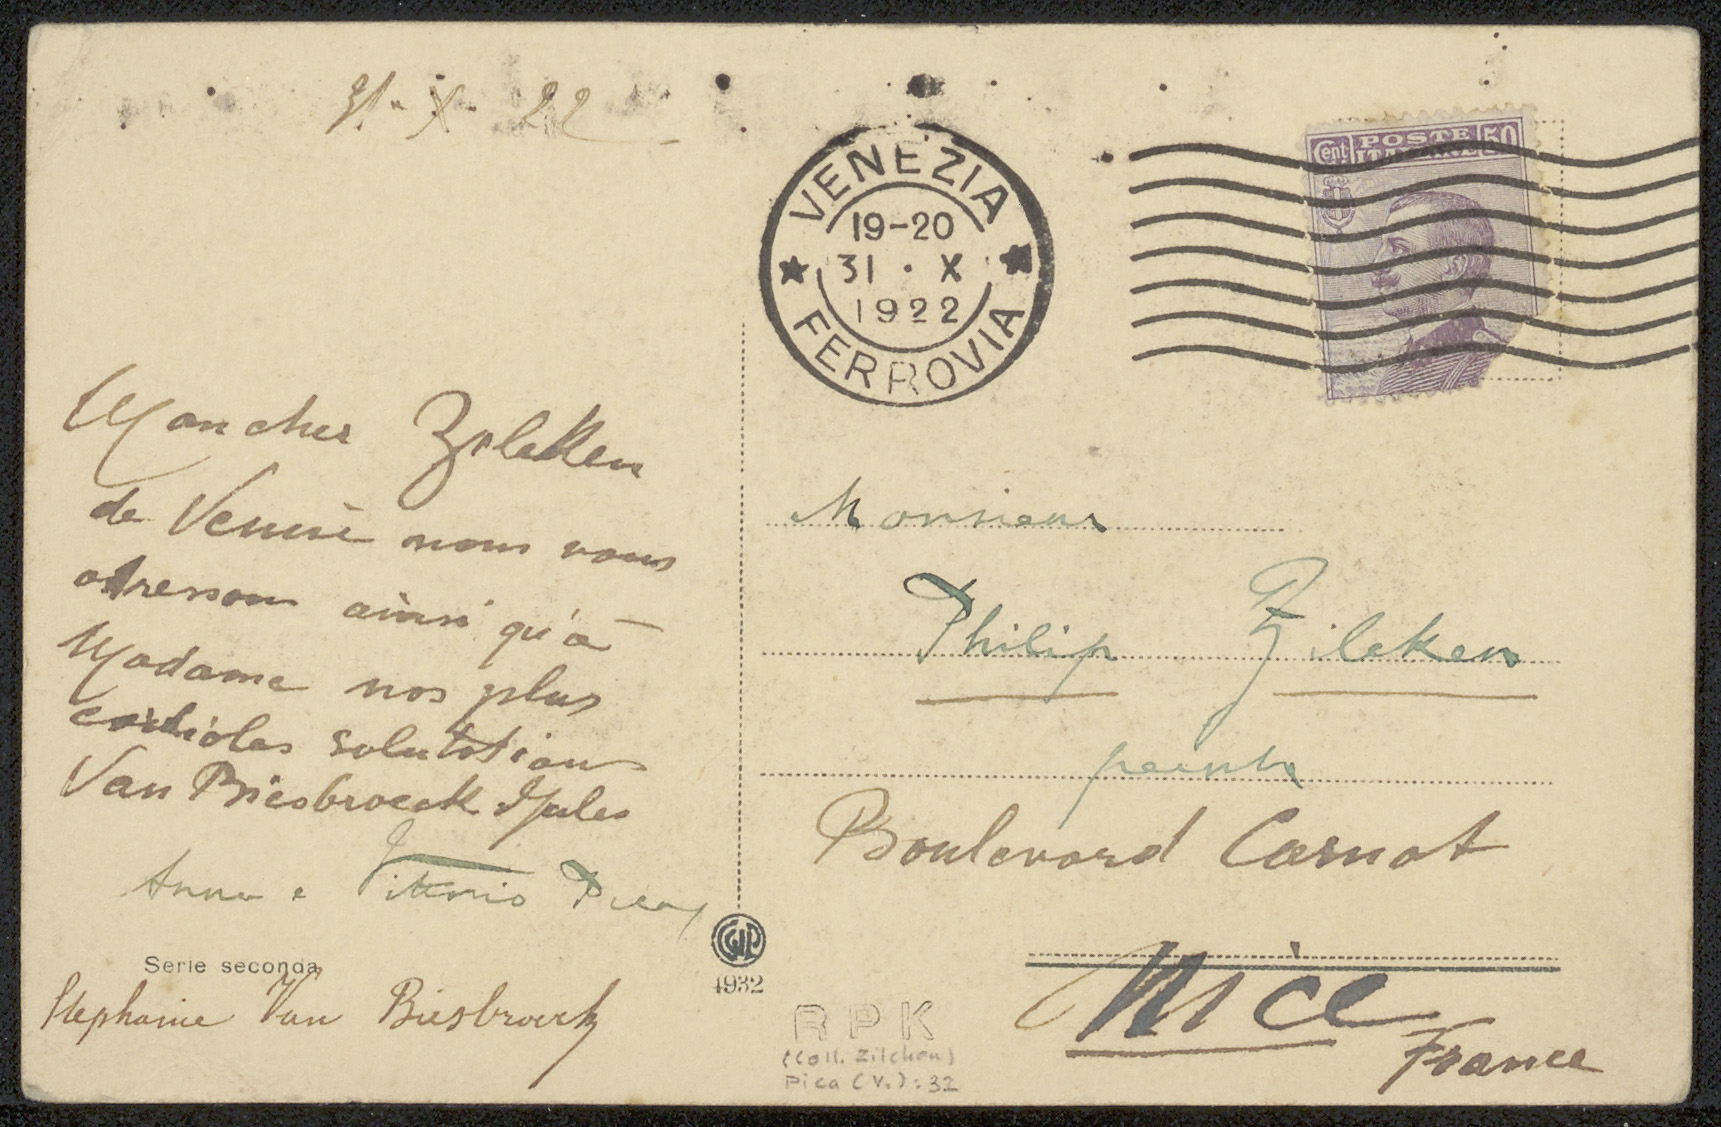 31-X-22
VENEZIA
19-20
31 · X
1922
FERROVIA
Cent. POSTE 50
ITALIANE
Mon cher Zilcken
de Venise nous vous
adressons ainsi qu'à
Madame nos plus
cordiales salutations
Van Biesbroeck Jules
Anna e Vittorio Pica
Serie seconda
Stephanie Van Biesbroeck
4932
Monsieur
Philip Zilcken
peintre
Boulevard Carnot
Nice
France
RPK
(Coll. Zilcken)
Pica (V.): 32